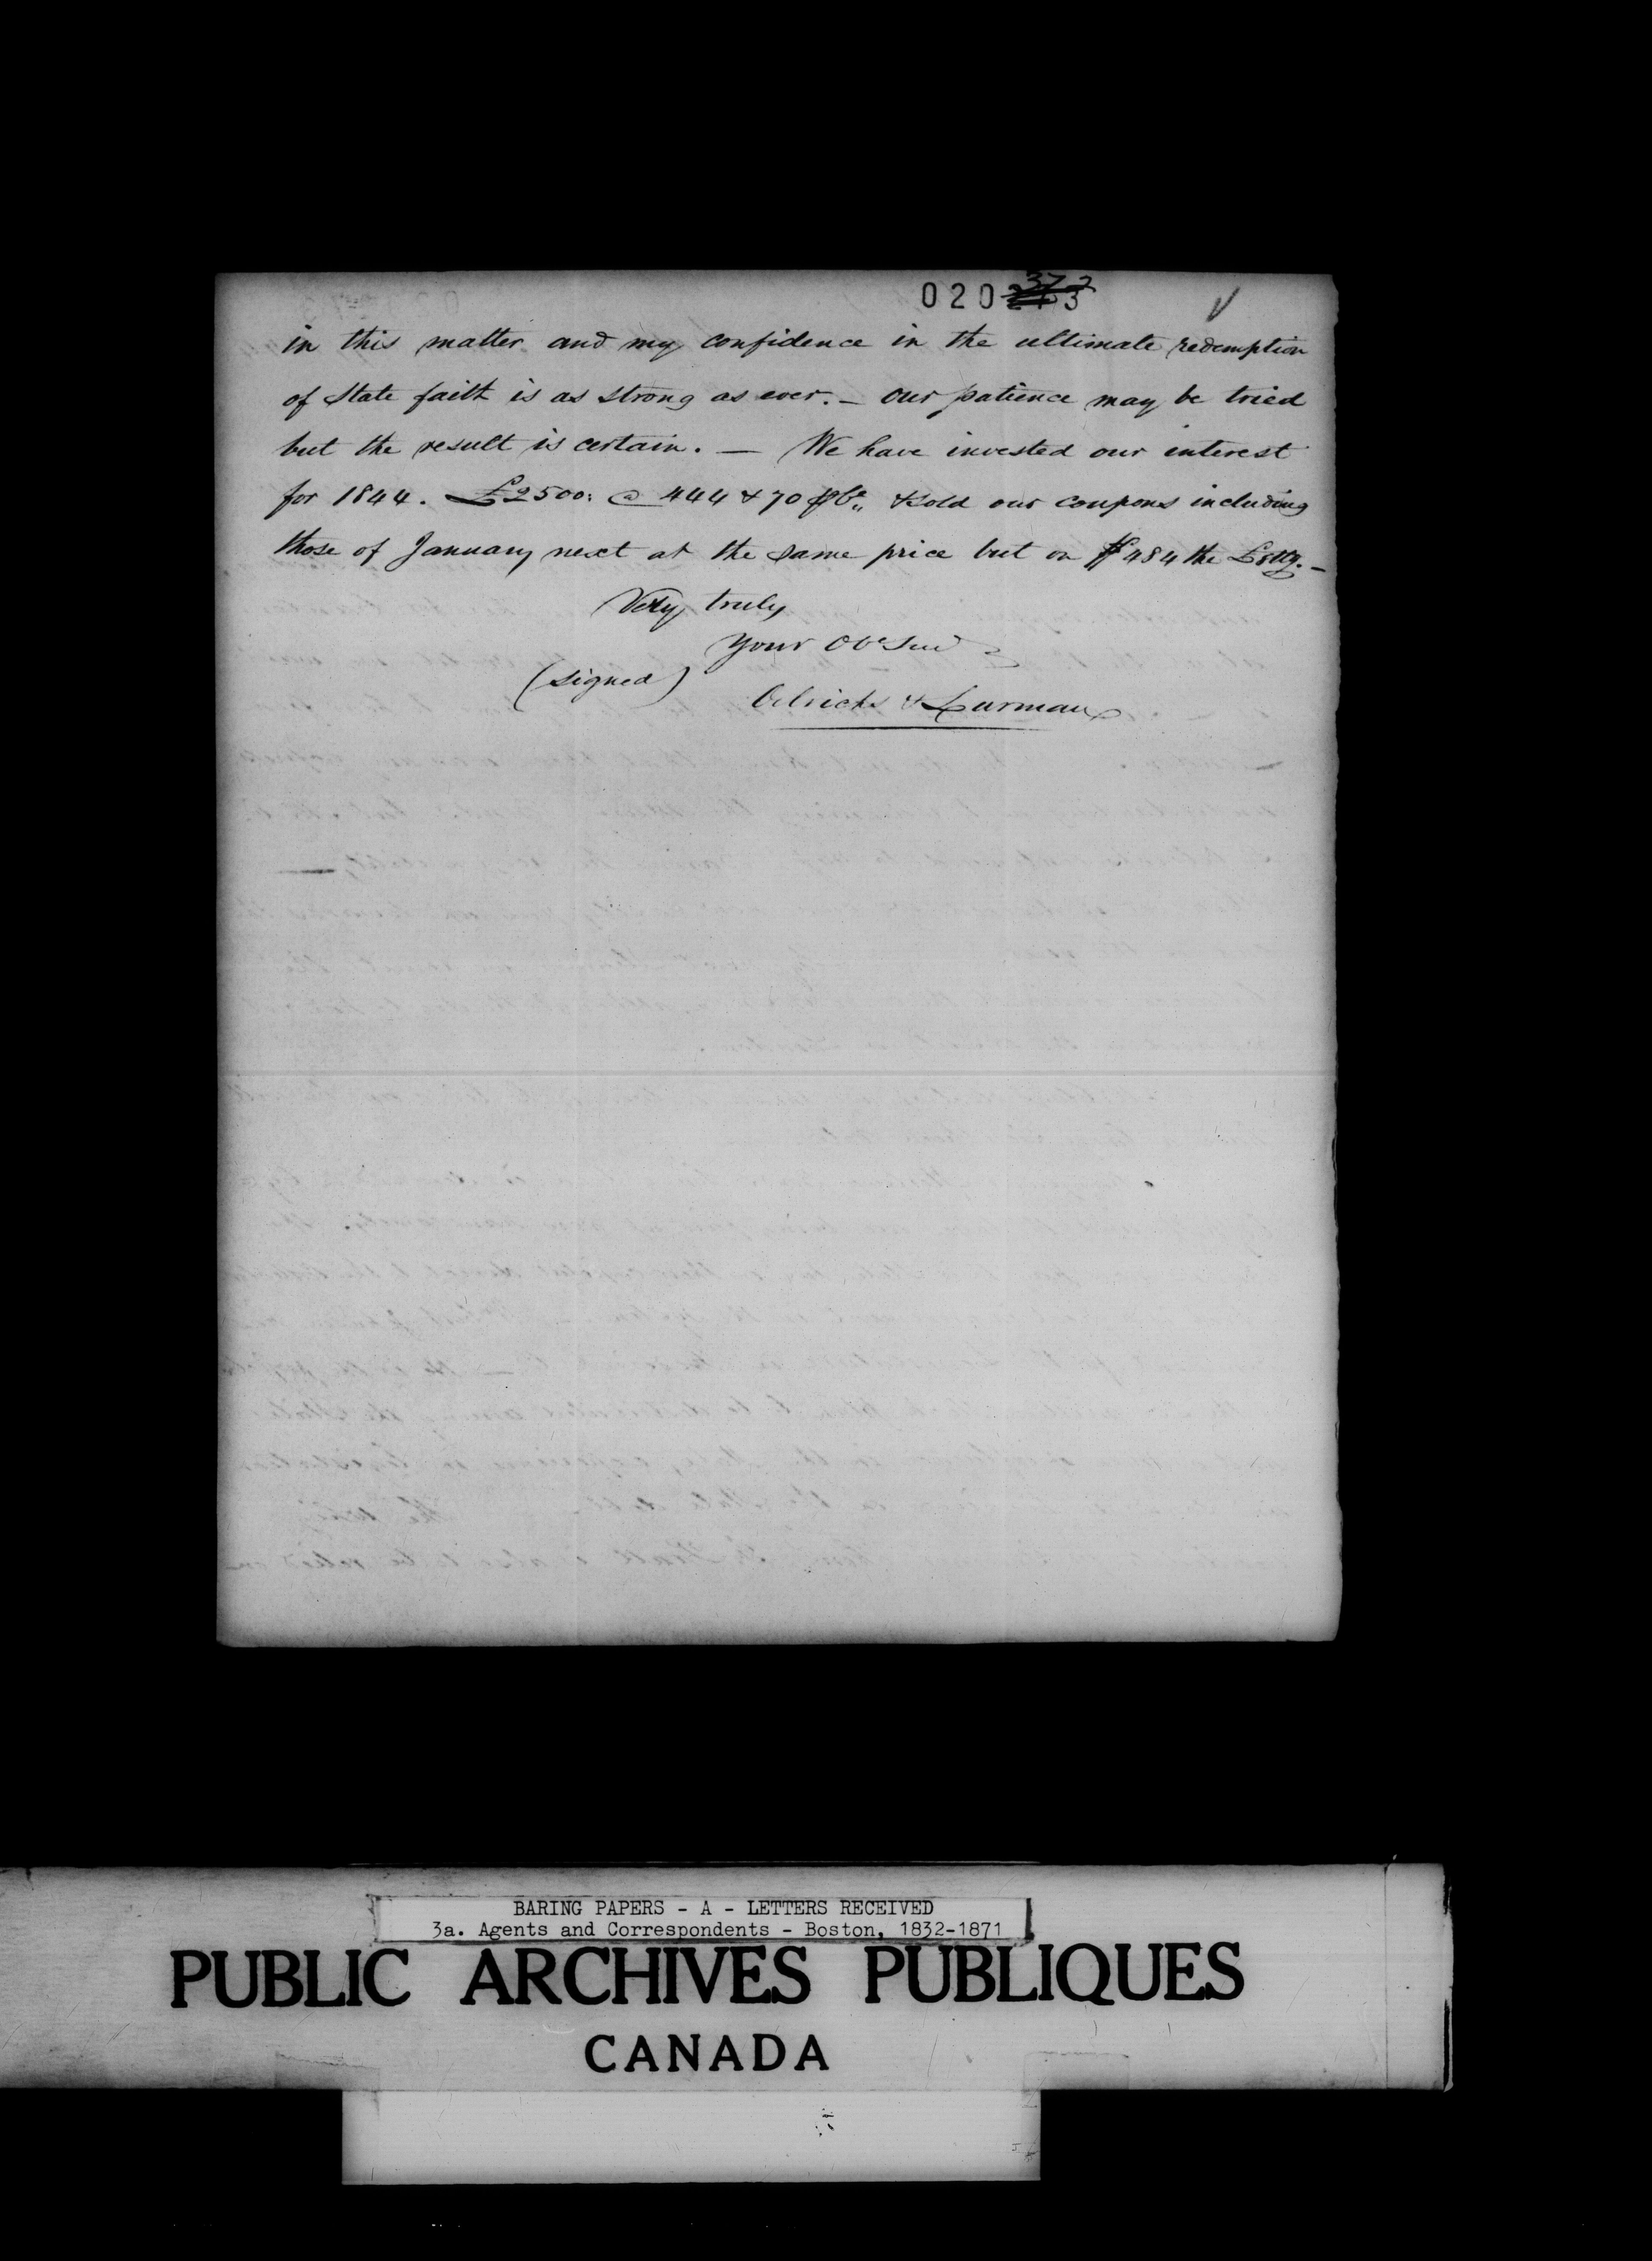 020 372
in this matter and my confidence in the ultimate redemption
of State faith is as strong as ever. – Our patience may be tried
but the result is certain. — We have invested our interest
for 1844. £2500: @ 444 & 70 & sold our coupons including
those of January next at the same price but on $484 the £ Stlg. –
Very truly
Your Obt Servt
(signed)
Oelrichs & Lurman
BARING PAPERS - A - LETTERS RECEIVED
3a. Agents and Correspondents - Boston, 1832-1871
PUBLIC ARCHIVES PUBLIQUES
CANADA